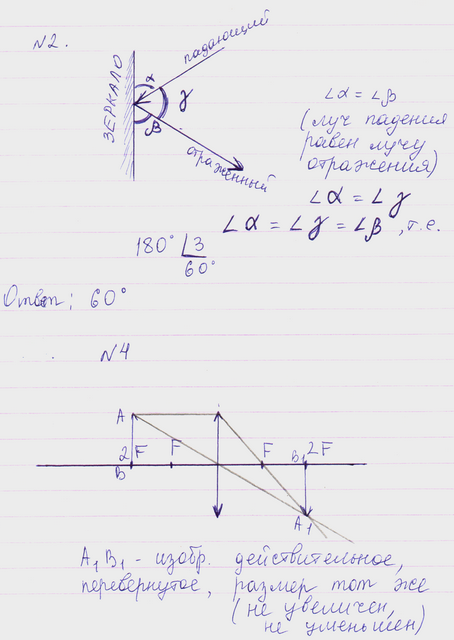 N2.
падающий
ЗЕРКАЛО
α
γ
β
отраженный
∠α = ∠β
(луч падения
равен лучу
отражения)
∠α = ∠γ
∠α = ∠γ = ∠β, т.е.
180° 3
60°
Ответ: 60°
N4
A
2F
F
F
B₁ 2F
B
A₁
A₁B₁ - изобр. действительное,
перевернутое, размер тот же
(не увеличен,
не уменьшен)